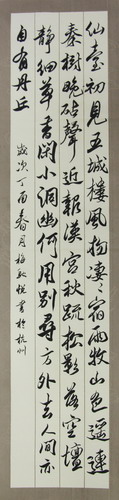 仙臺初見五城樓風物凄凄宿雨收山色遥連
秦樹晚砧聲近報漢宫秋疏松影落空壇
静細草香閑小洞幽何用别尋方外去人間亦
自有丹丘 歲次丁酉春月 悦書於杭州